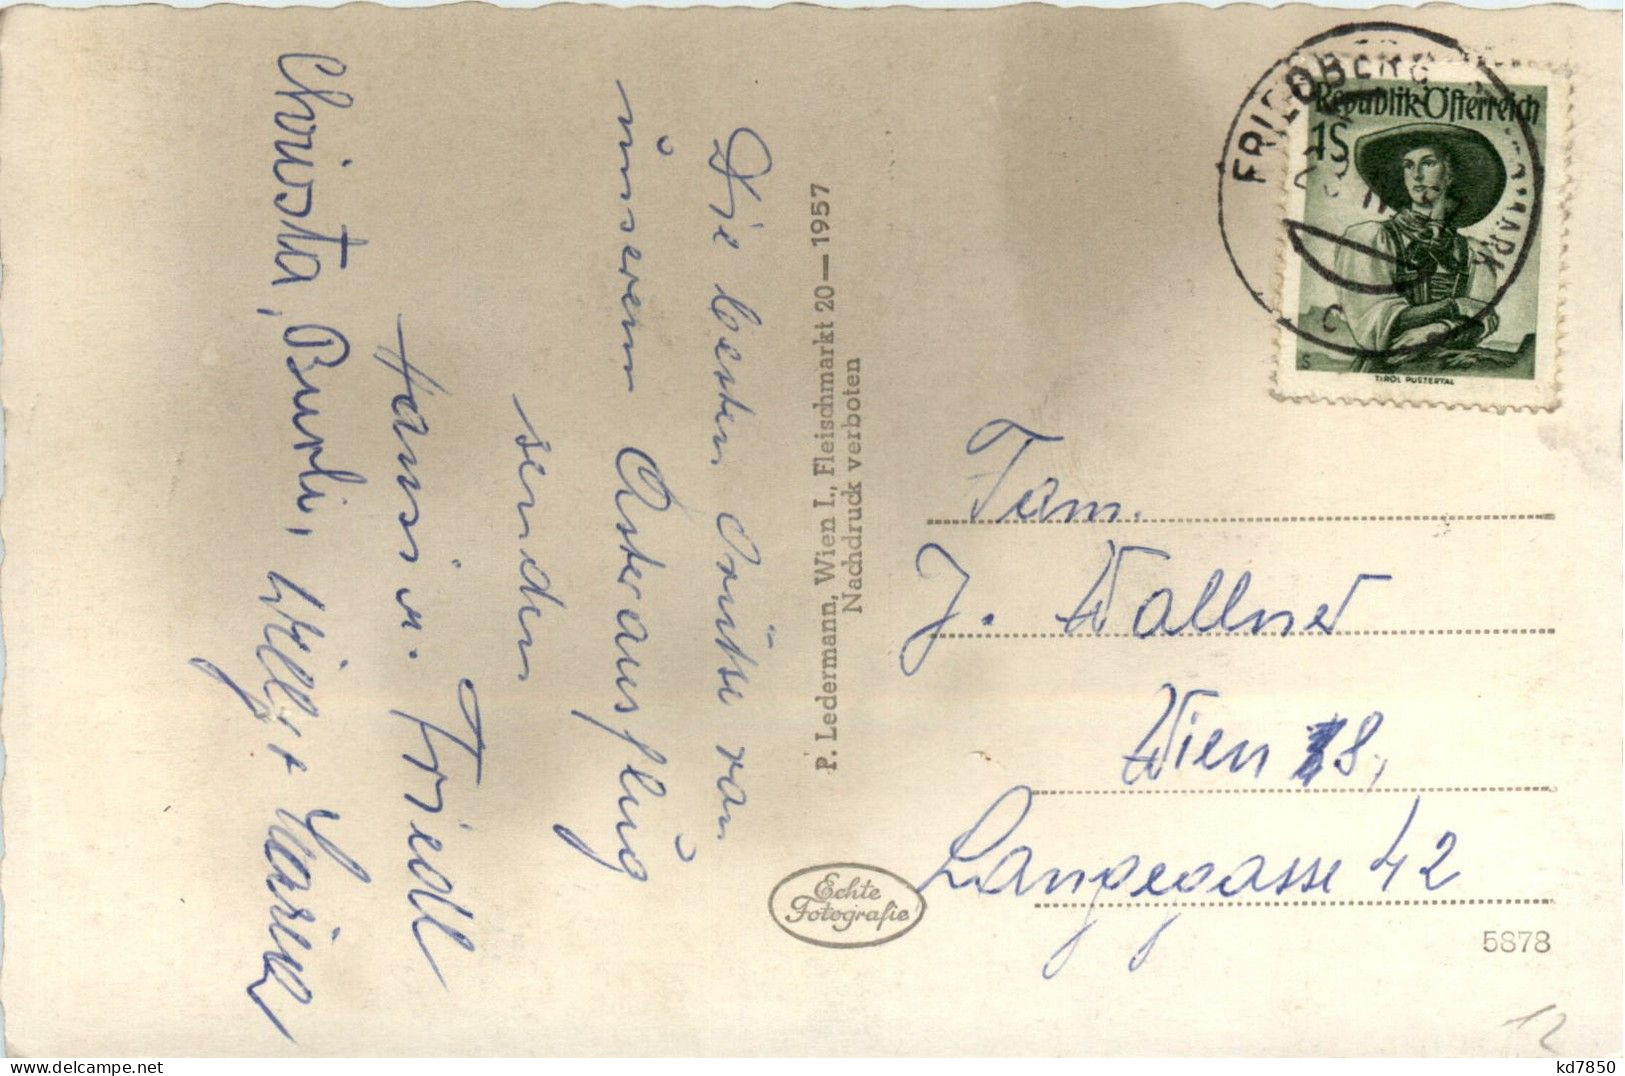 Die besten Grüße von
unserem Osterausflug
senden
Hansi u. Friedl
Christa, Burli, Willy +
P. Ledermann, Wien I., Fleischmarkt 20 — 1957
Nachdruck verboten
Echte
Fotografie
FRIEDBERG
C
Republik Österreich
1S
S
TIROL PUSTERTAL
Fam.
J. Wallner
Wien 8,
Langegasse 42
5878
12
delcampe.net
kd7850